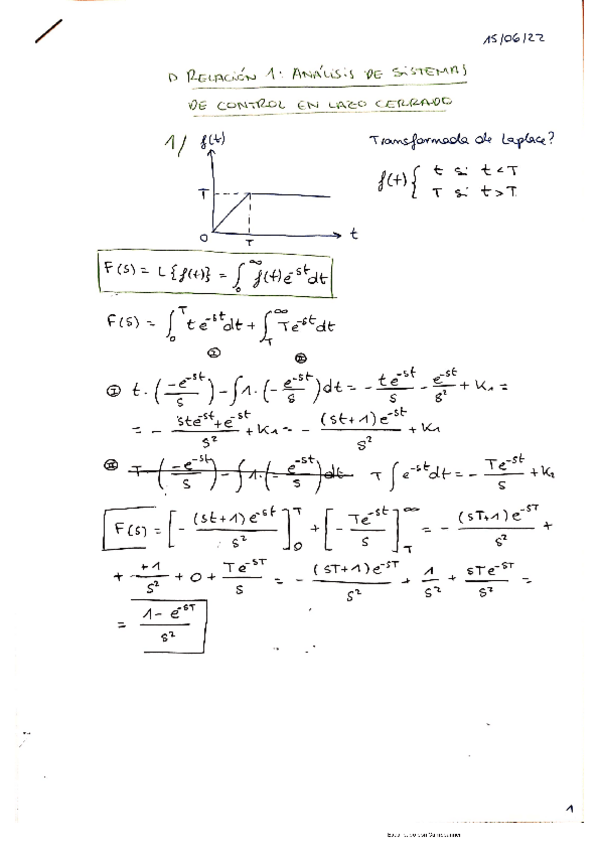 15/06/22
▷ RELACIÓN 1: ANÁLISIS DE SISTEMAS
DE CONTROL EN LAZO CERRADO
1/ f(t)
T
0
T
t
Transformada de Laplace?
f(t) { t si t<T
T si t>T
F(s) = L{f(t)} = ∫₀^∞ f(t)e^-st dt
F(s) = ∫₀^T te^-st dt + ∫_T^∞ Te^-st dt
Ⓘ Ⓘ Ⓘ
Ⓘ t·(-e^-st/s) - ∫1·(-e^-st/s)dt = - te^-st/s - e^-st/s² + K₁ =
= - ste^-st+e^-st/s² + K₁ = - (st+1)e^-st/s² + K₁
Ⓘ Ⓘ T·(-e^-st/s) - ∫1·(-e^-st/s)dt T∫e^-st dt = - Te^-st/s + K₂
F(s) = [- (st+1)e^-st/s²]₀^T + [- Te^-st/s]_T^∞ = - (sT+1)e^-sT/s² +
+ +1/s² + 0 + Te^-sT/s = - (sT+1)e^-sT/s² + 1/s² + sTe^-sT/s² =
= 1-e^-sT/s²
1